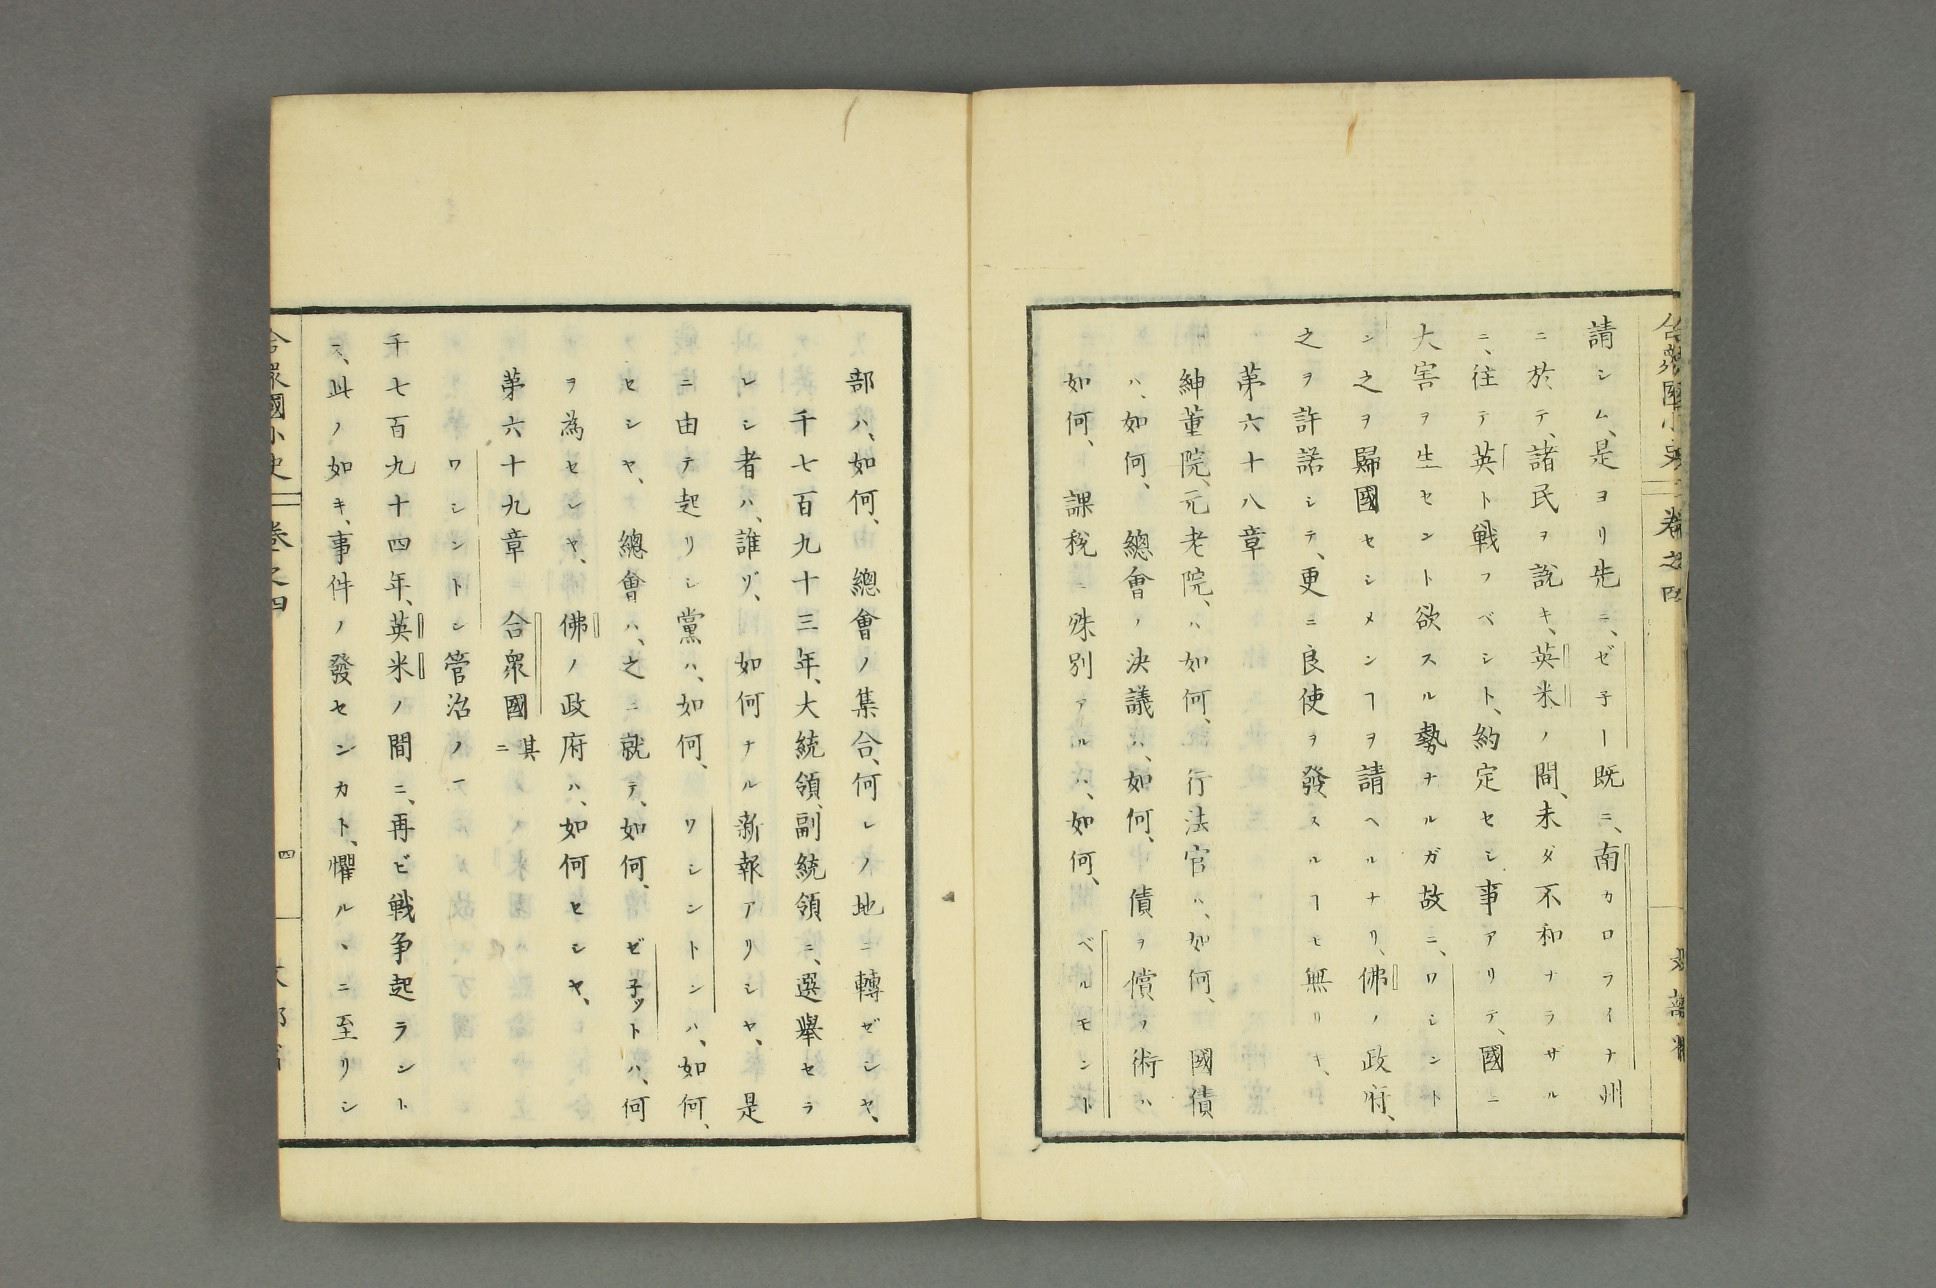 合衆國小史 二 卷之四
請シム、是ヨリ先ニ、ゼ子ー既ニ、南カロライナ州
ニ於テ、諸民ヲ説キ、英米ノ間、未ダ不和ナラザル
ニ、往テ英ト戦フベシト、約定セシ事アリテ、國ニ
大害ヲ生セント欲スル勢ナルガ故ニ、ワシント
ン之ヲ歸國セシメンヿヲ請ヘルナリ、佛ノ政府、
之ヲ許諾シテ、更ニ良使ヲ發スルヿモ無リキ、
第六十八章
紳董院、元老院、ハ如何、行法官ハ、如何、國債
ハ、如何、總會ノ決議ハ、如何、債ヲ償フ術ハ
如何、課税ニ殊別アルハ、如何、ベルモント
部ハ、如何、總會ノ集合、何レノ地ニ轉ゼシヤ、
千七百九十三年、大統領、副統領ニ、選舉セラ
レシ者ハ、誰ゾ、如何ナル新報アリシヤ、是
ニ由テ起リシ黨ハ、如何、ワシントンハ、如何、
セシヤ、總會ハ、之ニ就テ、如何、ゼ子ットハ、何
ヲ為セシヤ、佛ノ政府ハ、如何セシヤ、
第六十九章 合衆國 其二
ワシントン管治ノ
千七百九十四年、英米ノ間ニ、再ビ戦争起ラント
ス、此ノ如キ、事件ノ發センカト、懼ルヽニ至リシ
合衆國小史 卷之四
四